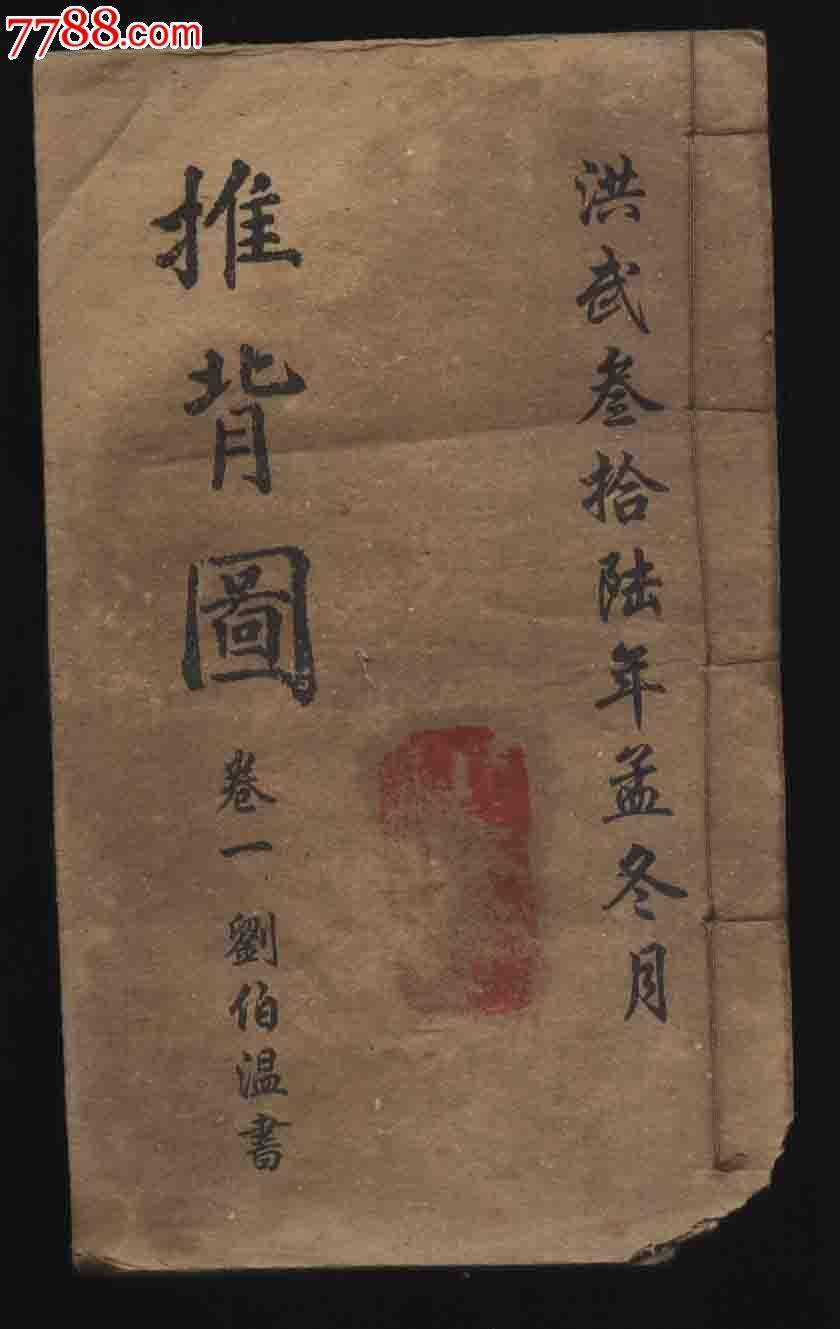 7788.com
洪武叁拾陆年孟冬月
推背圖
卷一 劉伯温書